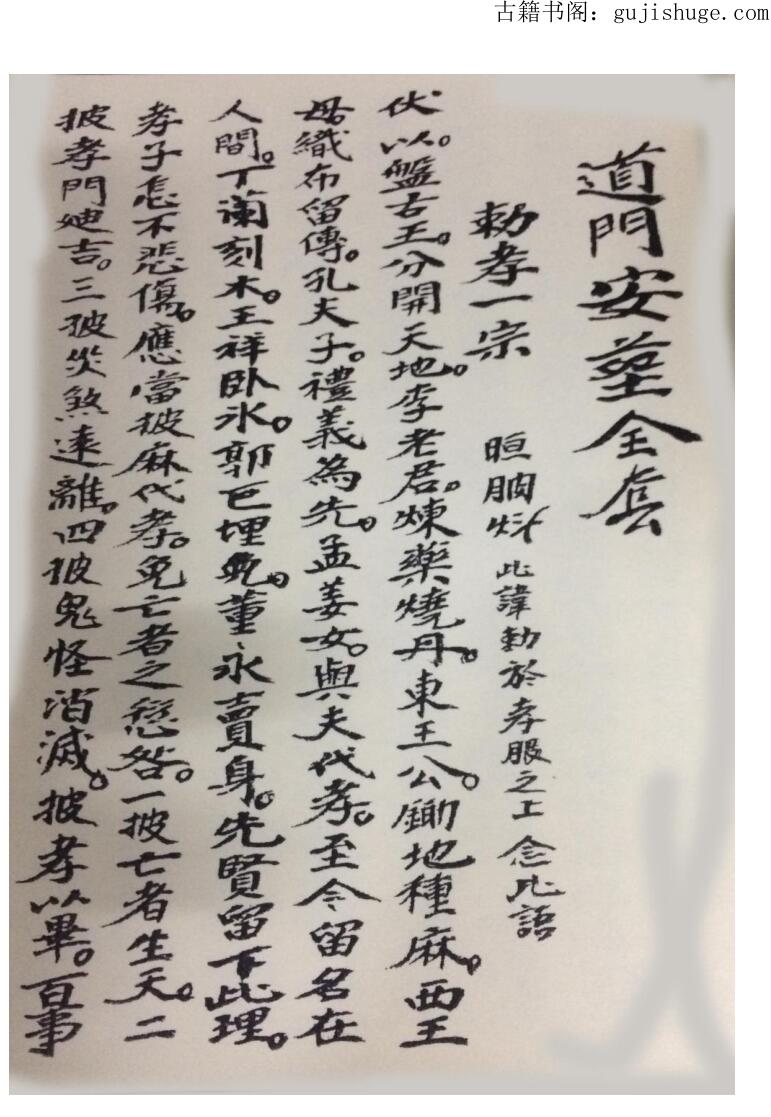 古籍书阁：gujishuge.com
道門安塋全套
勅孝一宗 晅胸 此諱勅於孝服之上 念此語
伏以。盤古王。分開天地。李老君。煉藥燒丹。東王公。鋤地種麻。西王
母織布留傳。孔夫子。禮義為先。孟姜女。與夫代孝。至今留名在
人間。丁蘭刻木。王祥卧氷。郭巨埋兒。董、永賣身。先賢留下此理。
孝子怎不悲傷。應當披麻代孝。免亡者之愆咎。一披亡者生天。二
披孝門迪吉。三披災煞遠離。四披鬼怪消滅。披孝以畢。百事